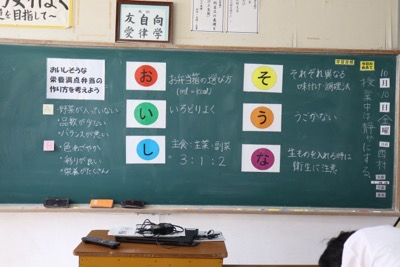 を目指して～
友自向
愛律学
おいしそうな
栄養満点弁当の
作り方を考えよう
・野菜が入っていない
・品数が少ない
・バランスが悪い
・色あざやか
・彩りが良い
・栄養がたくさん
お
お弁当箱の選び方
(ml=kcal)
い
いろどりよく
し
主食:主菜:副菜
3:1:2
そ
それぞれ異なる
味付け・調理法
う
うごかない
な
生ものを入れる時は
衛生に注意
10月10日(金)曜
西村
授業中は静かにする。